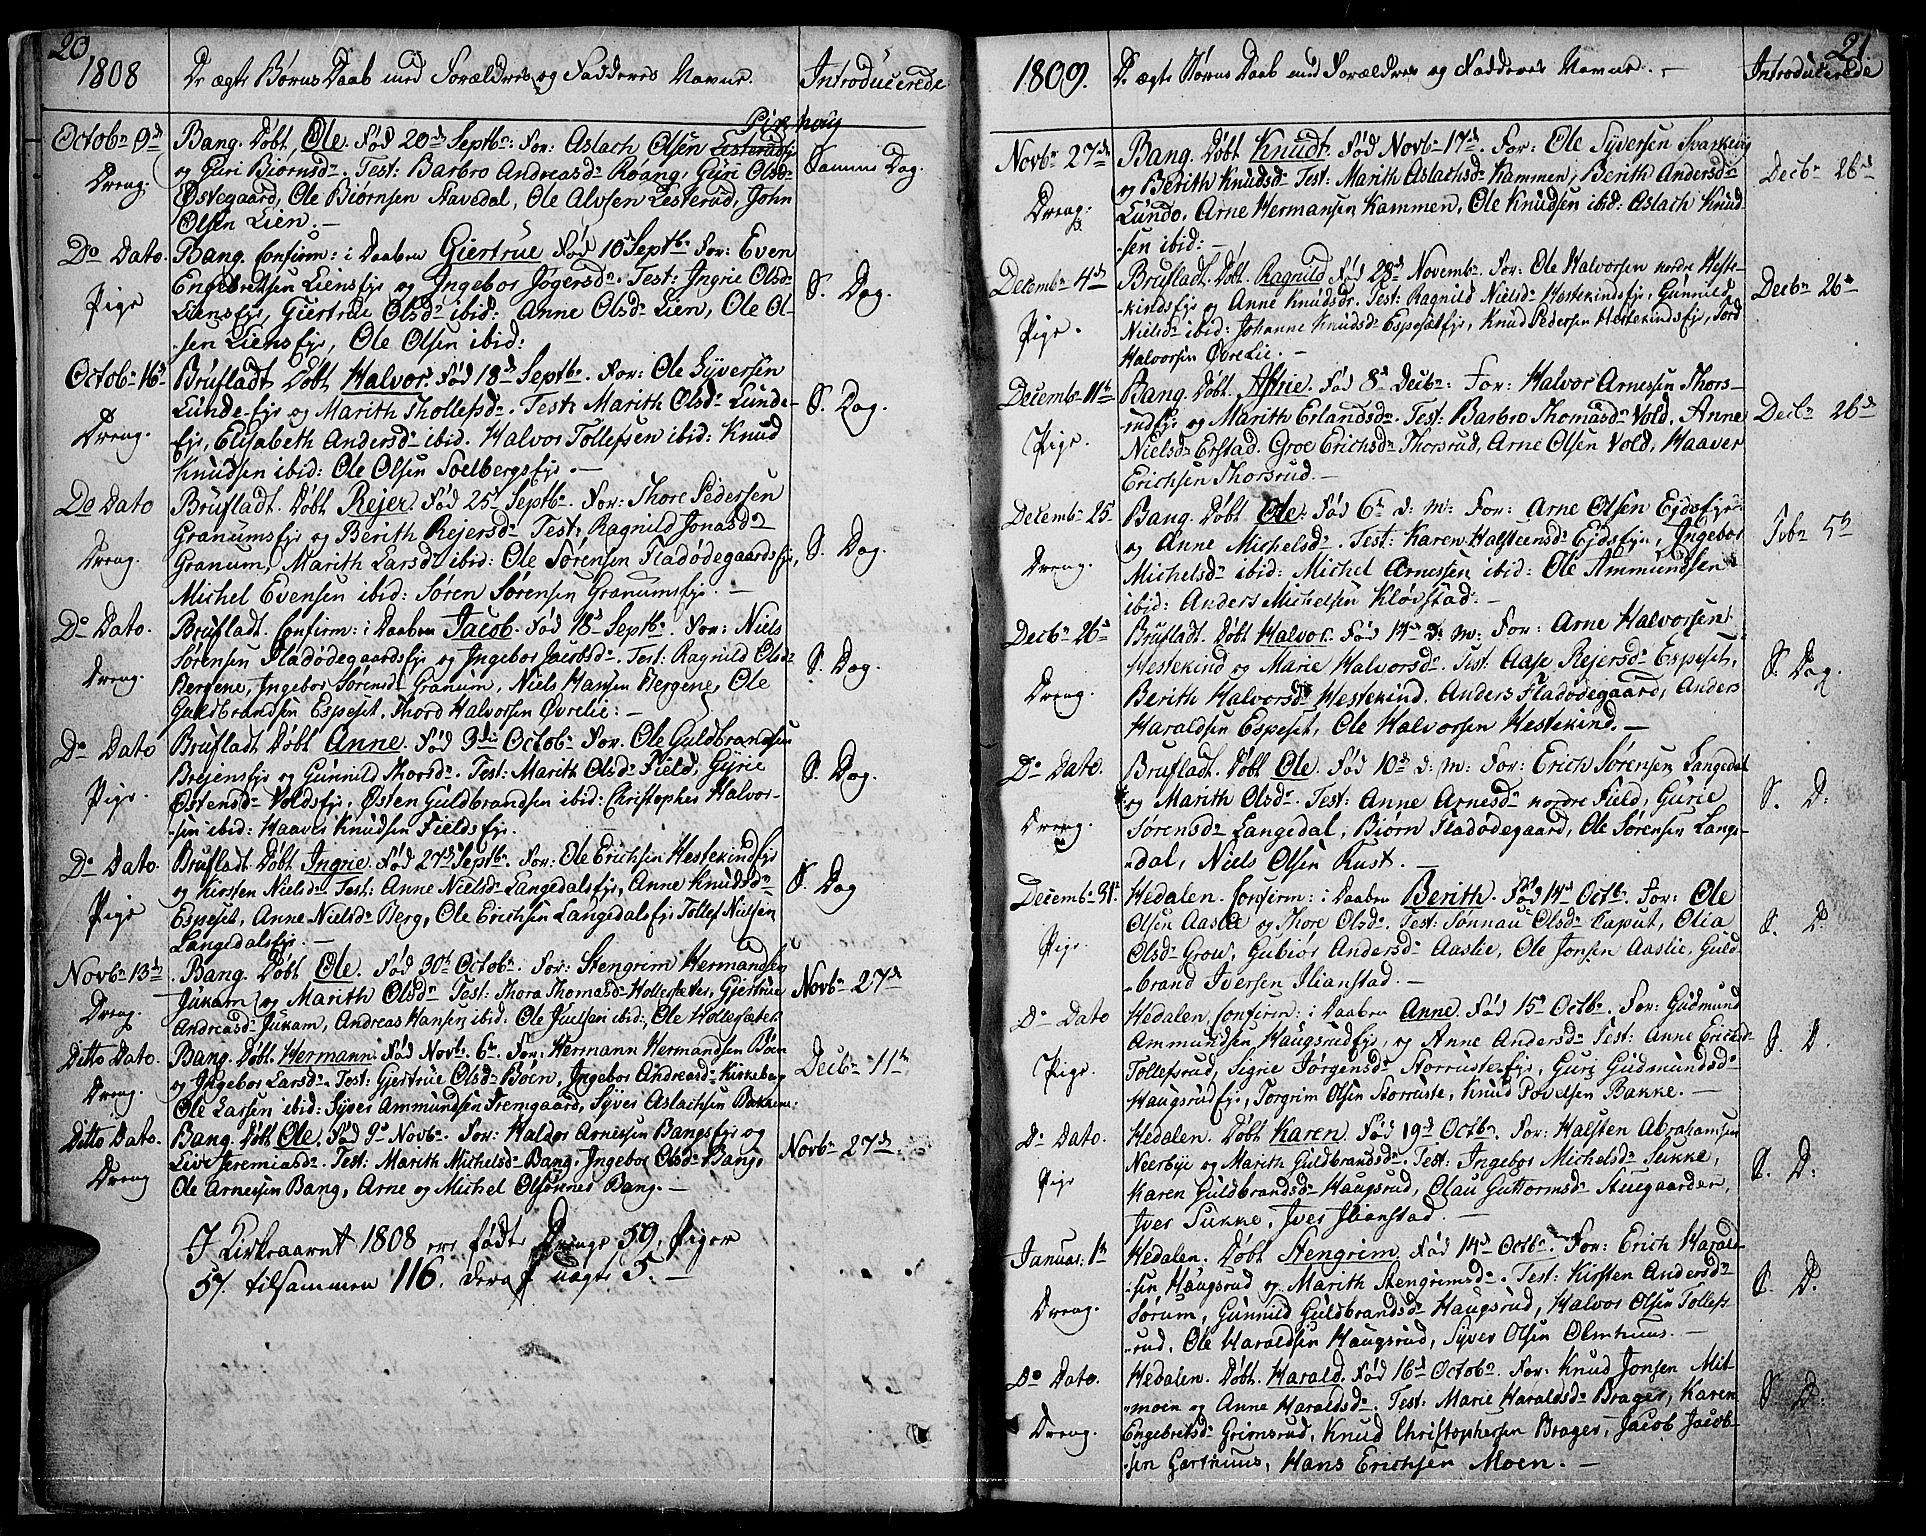 20
1808
De ægte Børns Daab med Forældres og Fadderes Navne.
Introducerede
Octobr 9de
Dreng.
Bang. Døbt Ole. Fød 20de Septbr: For: Aslach Olsen Lesterudejr
og Guri Biørnsdr. Test: Barbro Andreasdr Roang, Guri Olsdr
Østegaard, Ole Biørnsen Stavedal, Ole Alvsen Lesterud, John
Olsen Lien. —
Sammes Dag.
Do Dato.
Pige
Bang. Confirm: i Daaben Giertrue Fød 10 Septbr For: Even
Engebretsen Liensejr og Ingebor Jøgersdr. Test: Ingrie Olsdr
Liensejr, Giertrue Olsdr ibid: Anne Olsdr Lien, Ole Ol-
-sen Liensejr, Ole Olsen ibid:
S. Dag.
Octobr 16d
Dreng.
Brufladt Døbt Halvor. Fød 18d Septbr. For: Ole Syversen
Lunde-ejr og Marith Thollefsdr. Test: Marith Olsdr Lunde-
ejr, Elisabeth Andersdr ibid. Halvor Tollefssen ibid: Knud
Knudsen ibid: Ole Olsen Soelbergsejr. —
S. Dag.
Do Dato
Dreng.
Brufladt. Døbt Rejer. Fød 25 Septbr. For: Thore Pedersen
Granumsejr og Berith Rejersdr Test: Ragnild Jonasdr
Granum, Marith Larsdr ibid: Ole Sørensen Fladødegaardsejr,
Michel Evensen ibid: Søren Sørensen Granumsejr. —
S. Dag.
Do Dato.
Dreng.
Brufladt. Confirm: i Daaben Jacob. Fød 18d Septbr. For: Niels
Sørensen Fladødegaardsejr og Ingebor Jacobsdr. Test: Ragnild Olsdr
Bergene, Ingebor Sørensdr Granum, Niels Hansen Bergene, Ole
Guldbrandsen Espeset, Thord Halvorsen Øvrelie: —
S. Dag.
Do Dato
Pige.
Brufladt Døbt Anne. Fød 3die Octobr For. Ole Guldbrandsen
Brejensejr og Gunnild Thorsdr. Test: Marith Olsdr Field, Gyrie
Østensdr Voldsejr, Østen Guldbrandsen ibid: Christopher Halvor-
-sen ibid: Haaver Knudsen Fieldsejr.
S. Dag.
Do Dato.
Pige
Brufladt Døbt Ingrie. Fød 27de Septbr. For: Ole Erichsen Hestekindejr
og Kirsten Nielsdr Test: Anne Nielsdr Langedalsejr, Anne Knudsdr
Espeset, Anne Nielsdr Berg, Ole Erichsen Langedalsejr Tollef Nielsen
Langedalsejr. —
S. Dag
Novbr 13de
Dreng.
Bang. Døbt Ole. Fød 30t Octobr. For: Stengrim Hermandsen
Jukam og Marith Olsdr Test: Thora Thomasdr Hollesæter, Gjertrue
Andreasdr Jukam, Andreas Hansen ibid: Ole Juelsen ibid:, Ole Hollesæter
Novbr 27d
Ditto Dato.
Dreng.
Bang. Døbt Hermann. Fød Novbr. 6te For: Hermann Hermandsen Bøen
og Ingebor Larsdr. Test: Gjertrue Olsdr Bøen, Ingebor Andreasdr Kirkeberg
Ole Larsen ibid: Syver Ammundsen Fremgaard, Syver Aslachsen Bakken:
Decbr 11te
Ditto Dato.
Dreng
Bang. Døbt Ole. Fød 9d Novbr. For: Haldor Arnessen Bangsejr og
Live Jeremiasdr. Test: Marith Michelsdr Bang, Ingebor Olsdr Bang,
Ole Arnessen Bang, Arne og Michel Olsønner Bang. —
Novbr 27de
I Kirkeaaret 1808 ere fødte Drenge 59, Piger
57. tilsammen 116. deraf uægte 5. —
21
1809.
De ægte Børns Daab med Forældres og Fadderes Navne. —
Introducerede
Novbr 27de
Dreng.
Bang. Døbt Knudt. Fød Novbr 17d. For: Ole Syversen
og Berith Knudsdr Test: Marith Aslachsdr Kammen, Berith Andersdr
Lundo, Arne Hermansen Kammen, Ole Knudsen ibid: Aslach Knud-
-sen ibid: —
Decbr 26d
Decembr 4de
Pige.
Brufladt. Døbt. Ragnild Fød 28d Novembr. For: Ole Halvorsen nordre Heste-
kindsejr og Anne Knudsdr. Test: Ragnild Nielsdr Hestekindsejr, Gunnild
Nielsdr ibid: Johanne Knudsdr Espesetejr, Knud Pedersen Hestekindsejr, Tord
Halvorsen Øvrelie. —
Decbr 26de
Decembr 11te
Pige.
Bang. Døbt. Afrie. Fød 8d Decbr: For: Halvor Arnessen Thors-
-rudejr og Marith Erlandsdr. Test: Barbro Thomasdr Vold, Anne
Nielsdr Erstad. Groe Erichsdr Thorsrud, Arne Olsen Vold, Haaver
Erichsen Thorsrud.
Decbr 26d
Decembr 25
Dreng.
Bang. Døbt Ole. Fød 6te d: m: For: Arne Olsen Ejdsejr
og Anne Michelsdr. Test: Karen Halsteensdr Ejdsejr, Ingebor
Michelsdr ibid: Michel Arnessen ibid: Ole Ammundsen
ibid: Anders Michelsen Kløvstad: —
Febr 5te
Decbr 26d
Dreng.
Brufladt. Døbt Halvor. Fød 14d d: m: For: Arne Halvorsen
Hestekind og Marie Halvorsdr. Test: Aase Rejersdr Espeset,
Berith Halvorsdr Hestekind. Anders Fladødegaard, Anders
Haraldsen Espeset, Ole Halvorsen Hestekind. —
S. Dag.
Do Dato.
Dreng.
Brufladt. Døbt Ole. Fød 10de d: m: For: Erich Sørensen Langedal
og Marith Olsdr. Test: Anne Arnesdr nordre Field, Gurie
Sørensdr Langedal, Biørn Fladødegaard, Ole Sørensen Lange-
-dal, Niels Olsen Rust. —
S. D:
Decembr 31te
Pige.
Hedalen. Confirm: i Daaben Berith. Fød 14de Octbr. For: Ole
Olsen Aaslie og Thore Olsdr. Test: Sønnau Olsdr Caput, Olia
Olsdr Grov, Gubiør Andersdr Aaslie, Ole Jonsen Aaslie, Guld-
-brand Iversen Ilianstad. —
S. D.
Do Dato
Pige.
Hedalen. Confirm: i Daaben Anne. Fød 15d Octbr. For: Gudmund
Ammundsen Haugsrudejr, og Anne Andersdr Test: Anne Erichsdr
Tollefsrud, Sigrie Jørgensdr Storrustejr, Guri Gudmundsdr
Haugsrudejr, Torgrim Olsen Storruste, Knud Povelsen Bakke. —
S. D.
Do Dato.
Pige
Hedalen. Døbt Karen. Fød 19d Octbr. For: Halsten Abrahamsen
Neerbye og Marith Guldbrandsdr. Test: Ingebor Michelsdr Sukke,
Karen Guldbrandsdr Haugsrud, Olau Guttormsdr Stuegaarden,
Iver Sukke, Iver Ilianstad. —
S. D:
Januar. 1te
Dreng.
Hedalen. Døbt Stengrim. Fød 14d Octbr. For: Erich Harald-
-sen Haugsrud og Marith Stengrimsdr. Test: Kirsten Andersdr
Sørum, Gunnild Guldbrandsdr Haugsrud, Halvor Olsen Tollefs-
-rud, Ole Haraldsen Haugsrud, Syver Olsen Olmhuus. —
S. D.
Do Dato.
Dreng.
Hedalen. Døbt. Harald. Fød 16d Octobr. For: Knud Jonsen Mit-
-moen og Anne Haraldsdr. Test: Marie Haraldsdr Brager, Karen
Engebretsdr Grimsrud, Knud Christophersen Brager, Jacob Jacob-
-sen Garthuus, Hans Erichsen Moen. —
S. D.